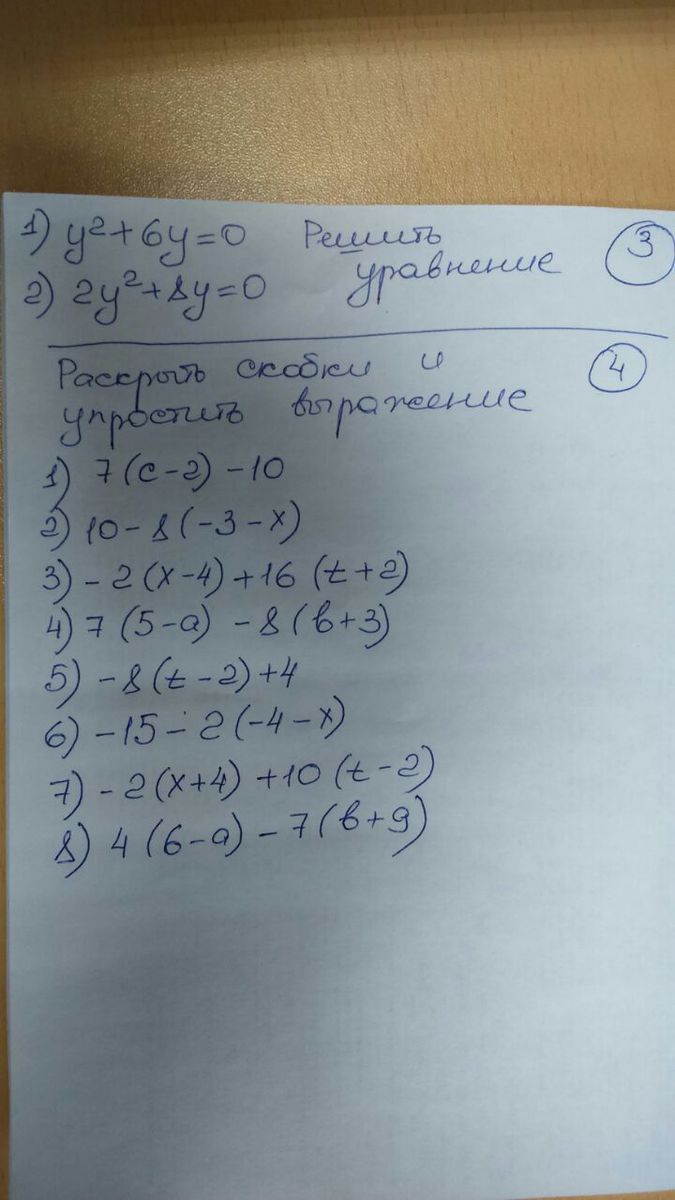 1) y²+6y=0 Решить ③
2) 2y²+8y=0 уравнение
Раскрыть скобки и ④
упростить выражение
1) 7(c-2)-10
2) 10-8(-3-x)
3) -2(x-4)+16(t+2)
4) 7(5-a)-8(b+3)
5) -8(t-2)+4
6) -15-2(-4-x)
7) -2(x+4)+10(t-2)
8) 4(6-a)-7(b+9)